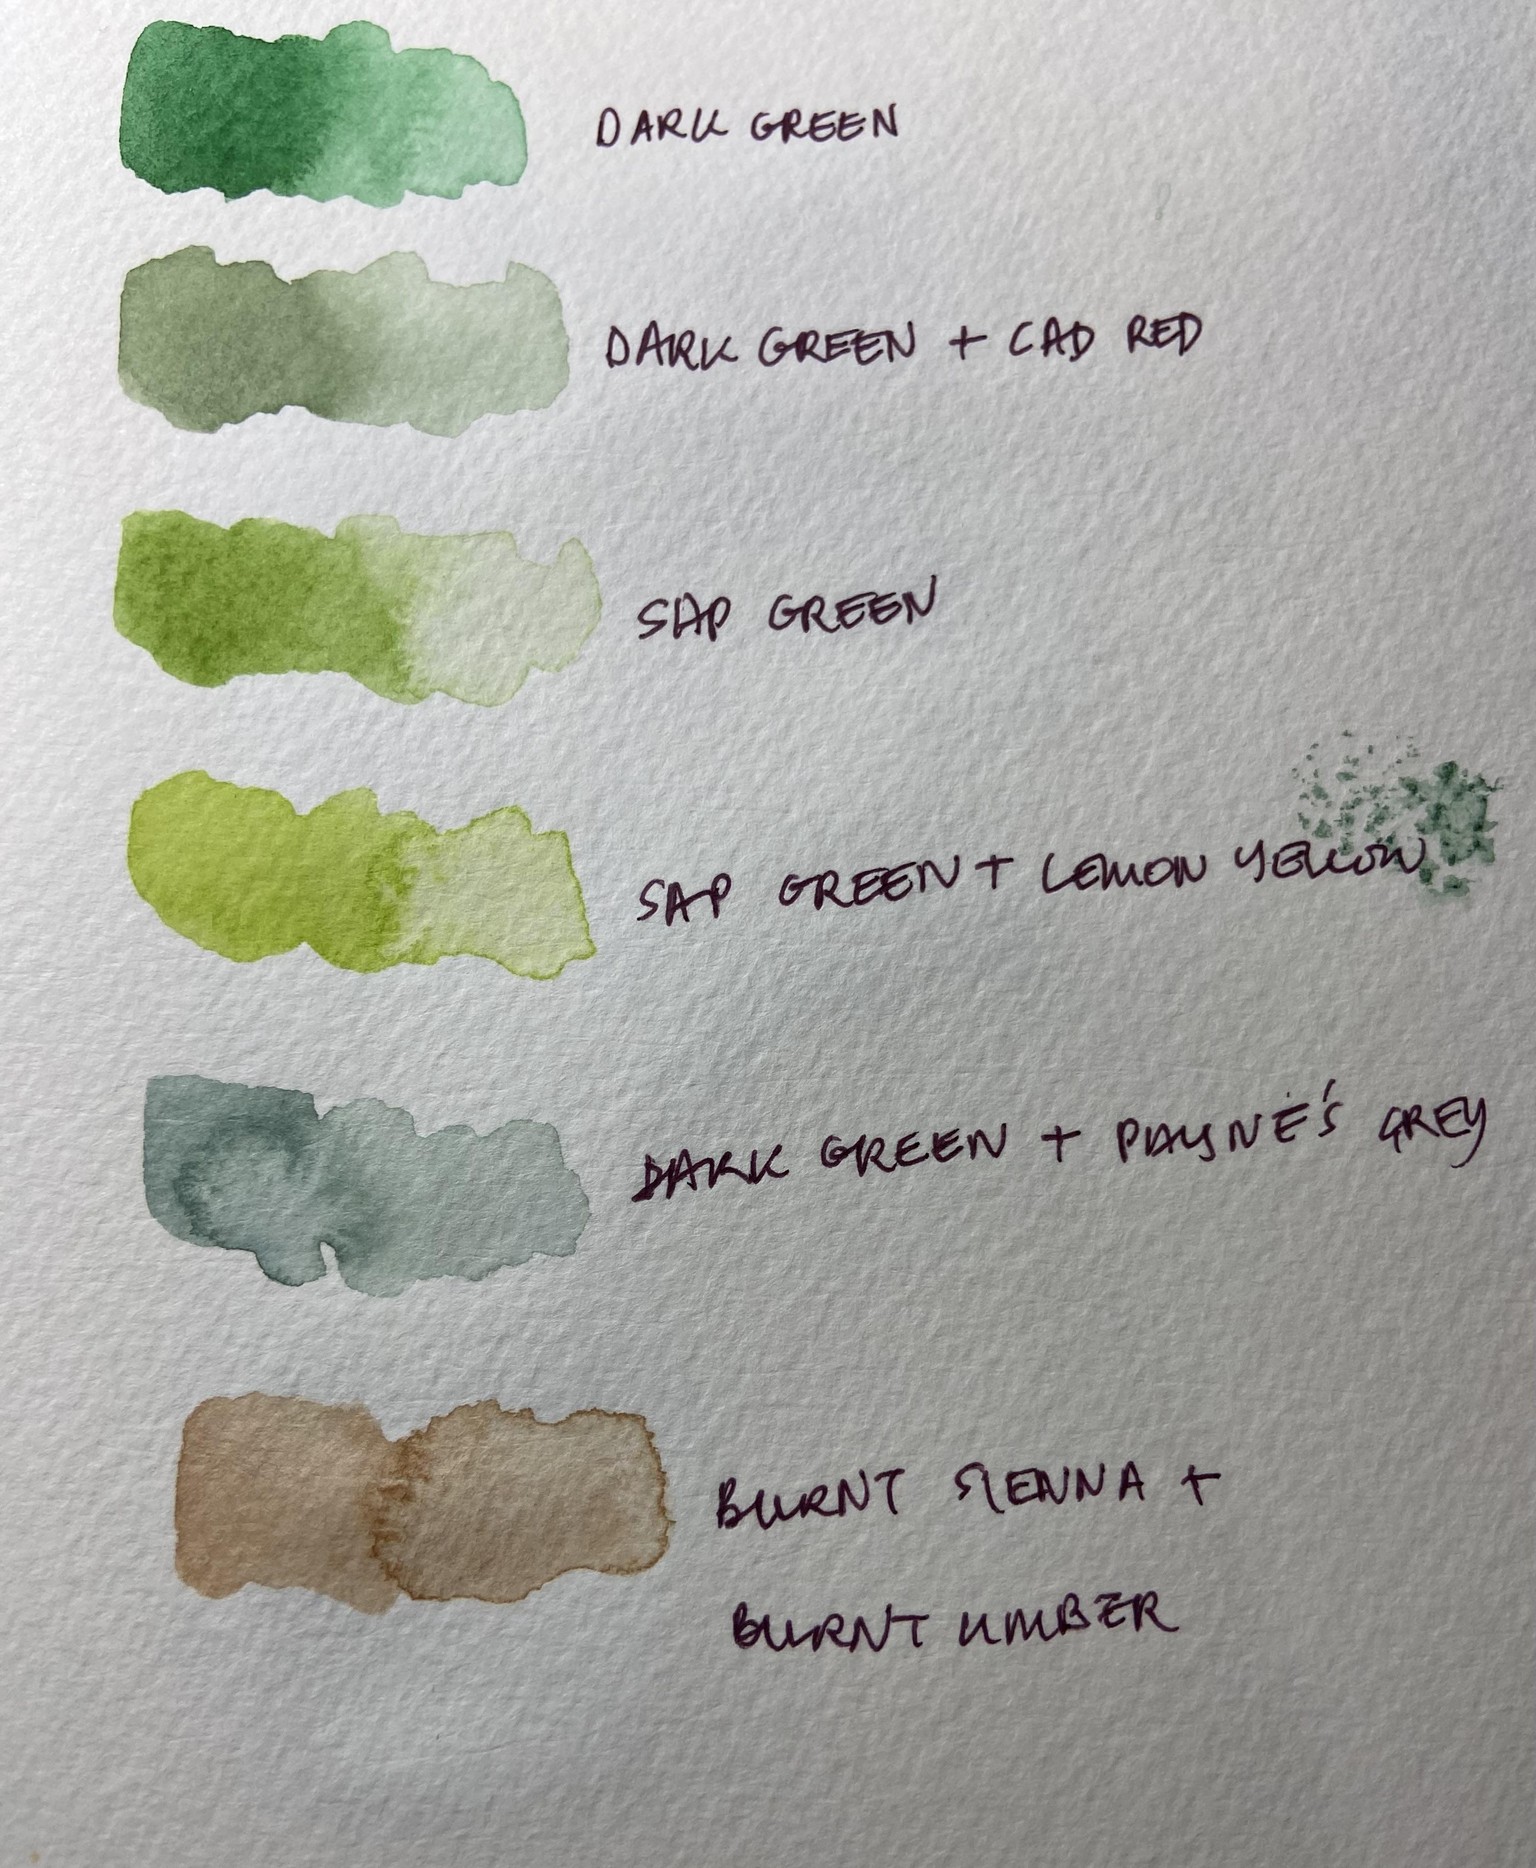 DARK GREEN
DARK GREEN + CAD RED
SAP GREEN
SAP GREEN + LEMON YELLOW
DARK GREEN + PAYNE'S GREY
BURNT SIENNA +
BURNT UMBER